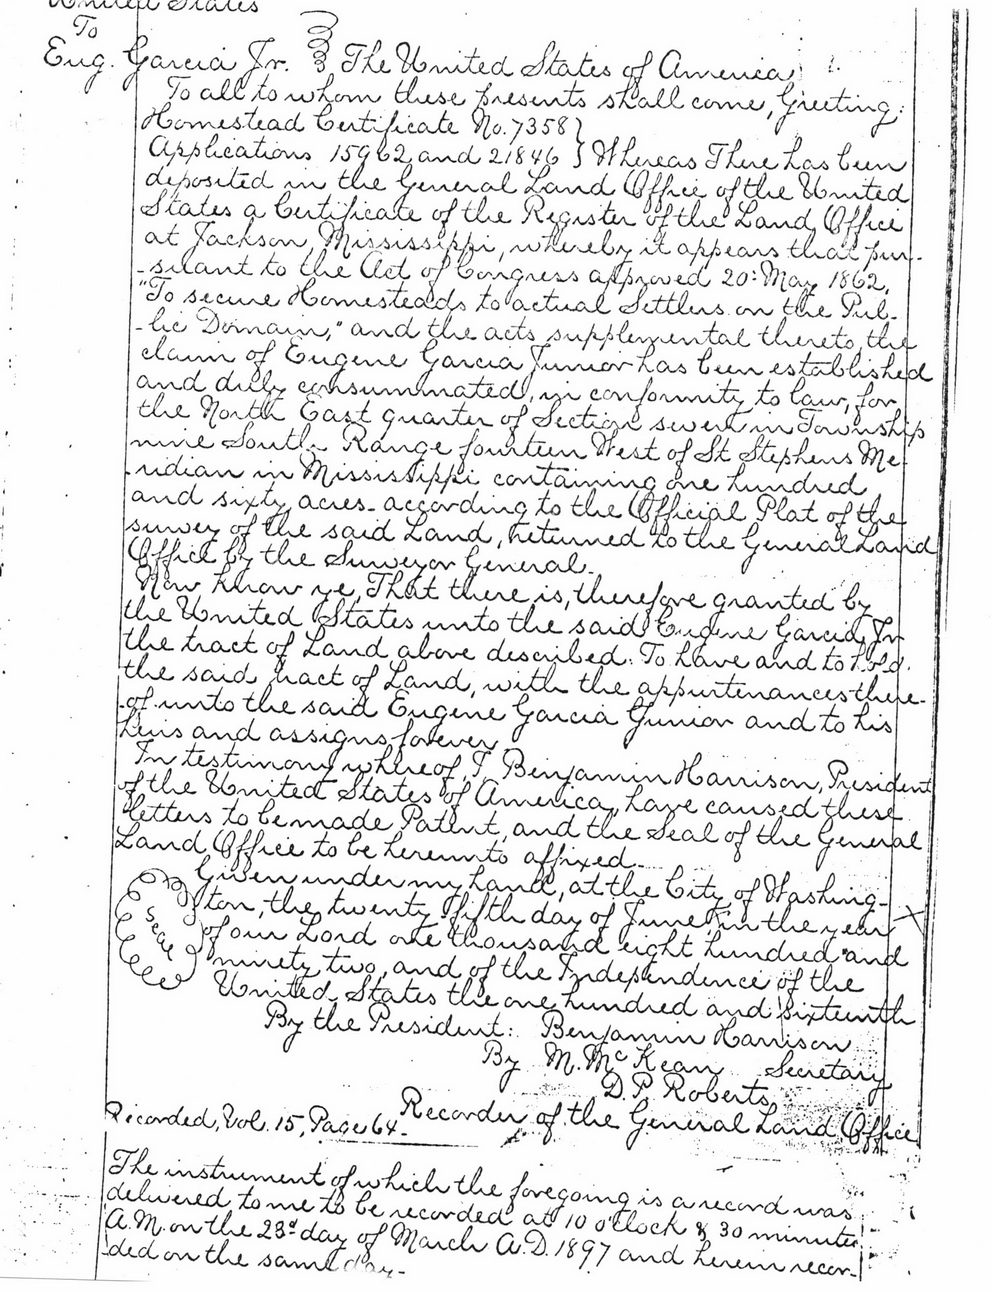 United States
To
Eug. Garcia Jr. The United States of America
To all to whom these presents shall come, Greeting:
Homestead Certificate No. 7358 }
Applications 15962 and 21846 } Whereas There has been
deposited in the General Land Office of the United
States a Certificate of the Register of the Land Office
at Jackson, Mississippi, whereby it appears that pur-
-suant to the Act of Congress approved 20: May 1862,
"To secure Homesteads to actual Settlers on the Pub-
-lic Domain," and the acts supplemental thereto, the
claim of Eugene Garcia Junior has been established
and duly consummated, in conformity to law, for
the North East quarter of Section seven in Township
nine South Range fourteen West of St Stephens Me-
-ridian in Mississippi containing one hundred
and sixty acres. according to the Official Plat of the
survey of the said Land, returned to the General Land
Office by the Surveyor General.
Now know ye, That there is, therefore granted by
the United States unto the said Eugene Garcia Jr
the tract of Land above described: To have and to hold
the said tract of Land, with the appurtenances there-
-of unto the said Eugene Garcia Junior and to his
heirs and assigns forever
In testimony whereof, I Benjamin Harrison, President
of the United States of America, have caused these
letters to be made Patent, and the Seal of the General
Land Office to be hereunto affixed.
Given under my hand, at the City of Washing-
Seal ton, the twenty fifth day of June, in the year
of our Lord one thousand eight hundred and
ninety two, and of the Independence of the
United States the one hundred and sixteenth
By the President: Benjamin Harrison
By M. McKean Secretary
D. P. Roberts,
Recorder of the General Land Office
Recorded, Vol. 15, Page 64.
The instrument of which the foregoing is a record was
delivered to me to be recorded at 10 o'clock & 30 minutes
A.M. on the 23d day of March A.D. 1897 and herein recor-
-ded on the same day.